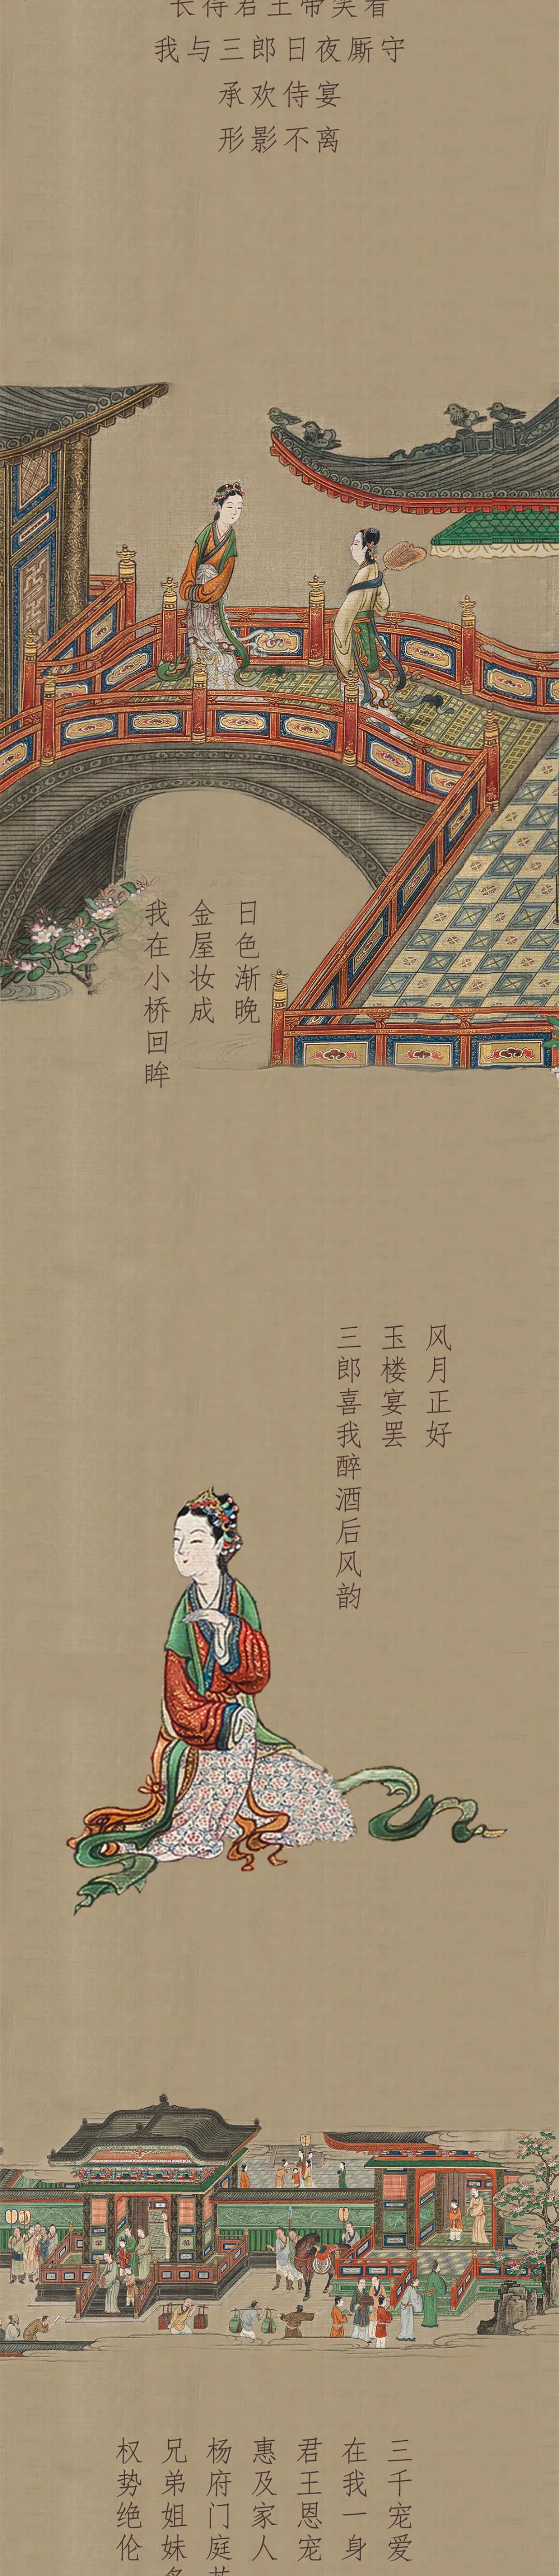 长得君王带笑看
我与三郎日夜厮守
承欢侍宴
形影不离
日色渐晚
金屋妆成
我在小桥回眸
风月正好
玉楼宴罢
三郎喜我醉酒后风韵
三千宠爱
在我一身
君王恩宠
惠及家人
杨府门庭
兄弟姐妹
权势绝伦